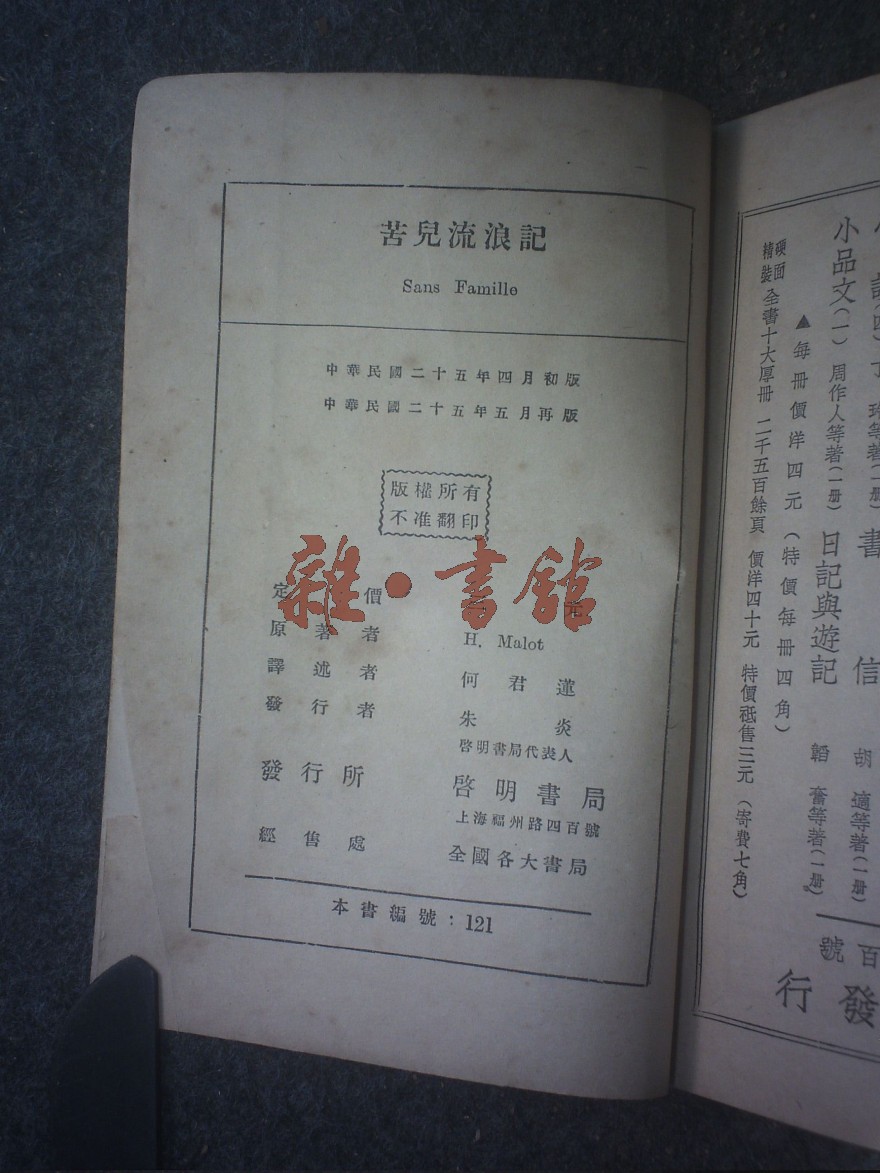 苦兒流浪記
Sans Famille
中華民國二十五年四月初版
中華民國二十五年五月再版
版權所有
不准翻印
雜·書館
定價 元
原著者 H. Malot
譯述者 何君蓮
發行者 朱炎
啓明書局代表人
發行所 啓明書局
上海福州路四百號
經售處 全國各大書局
本書編號：121
等著(一册) 書信 胡適等著(一册)
小品文(一) 周作人等著(一册) 日記與遊記 韜奮等著(一册)
▲每冊價洋四元(特價每冊四角)
硬面精裝 全書十大厚冊 二千五百餘頁 價洋四十元 特價祗售三元(寄費七角)
百號
發行